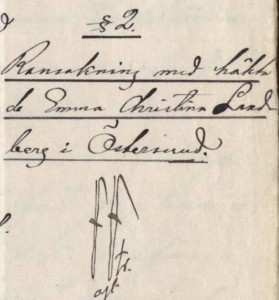 § 2.
Ransakning med häkta
de Emma Christina Land
berg i Östersund.